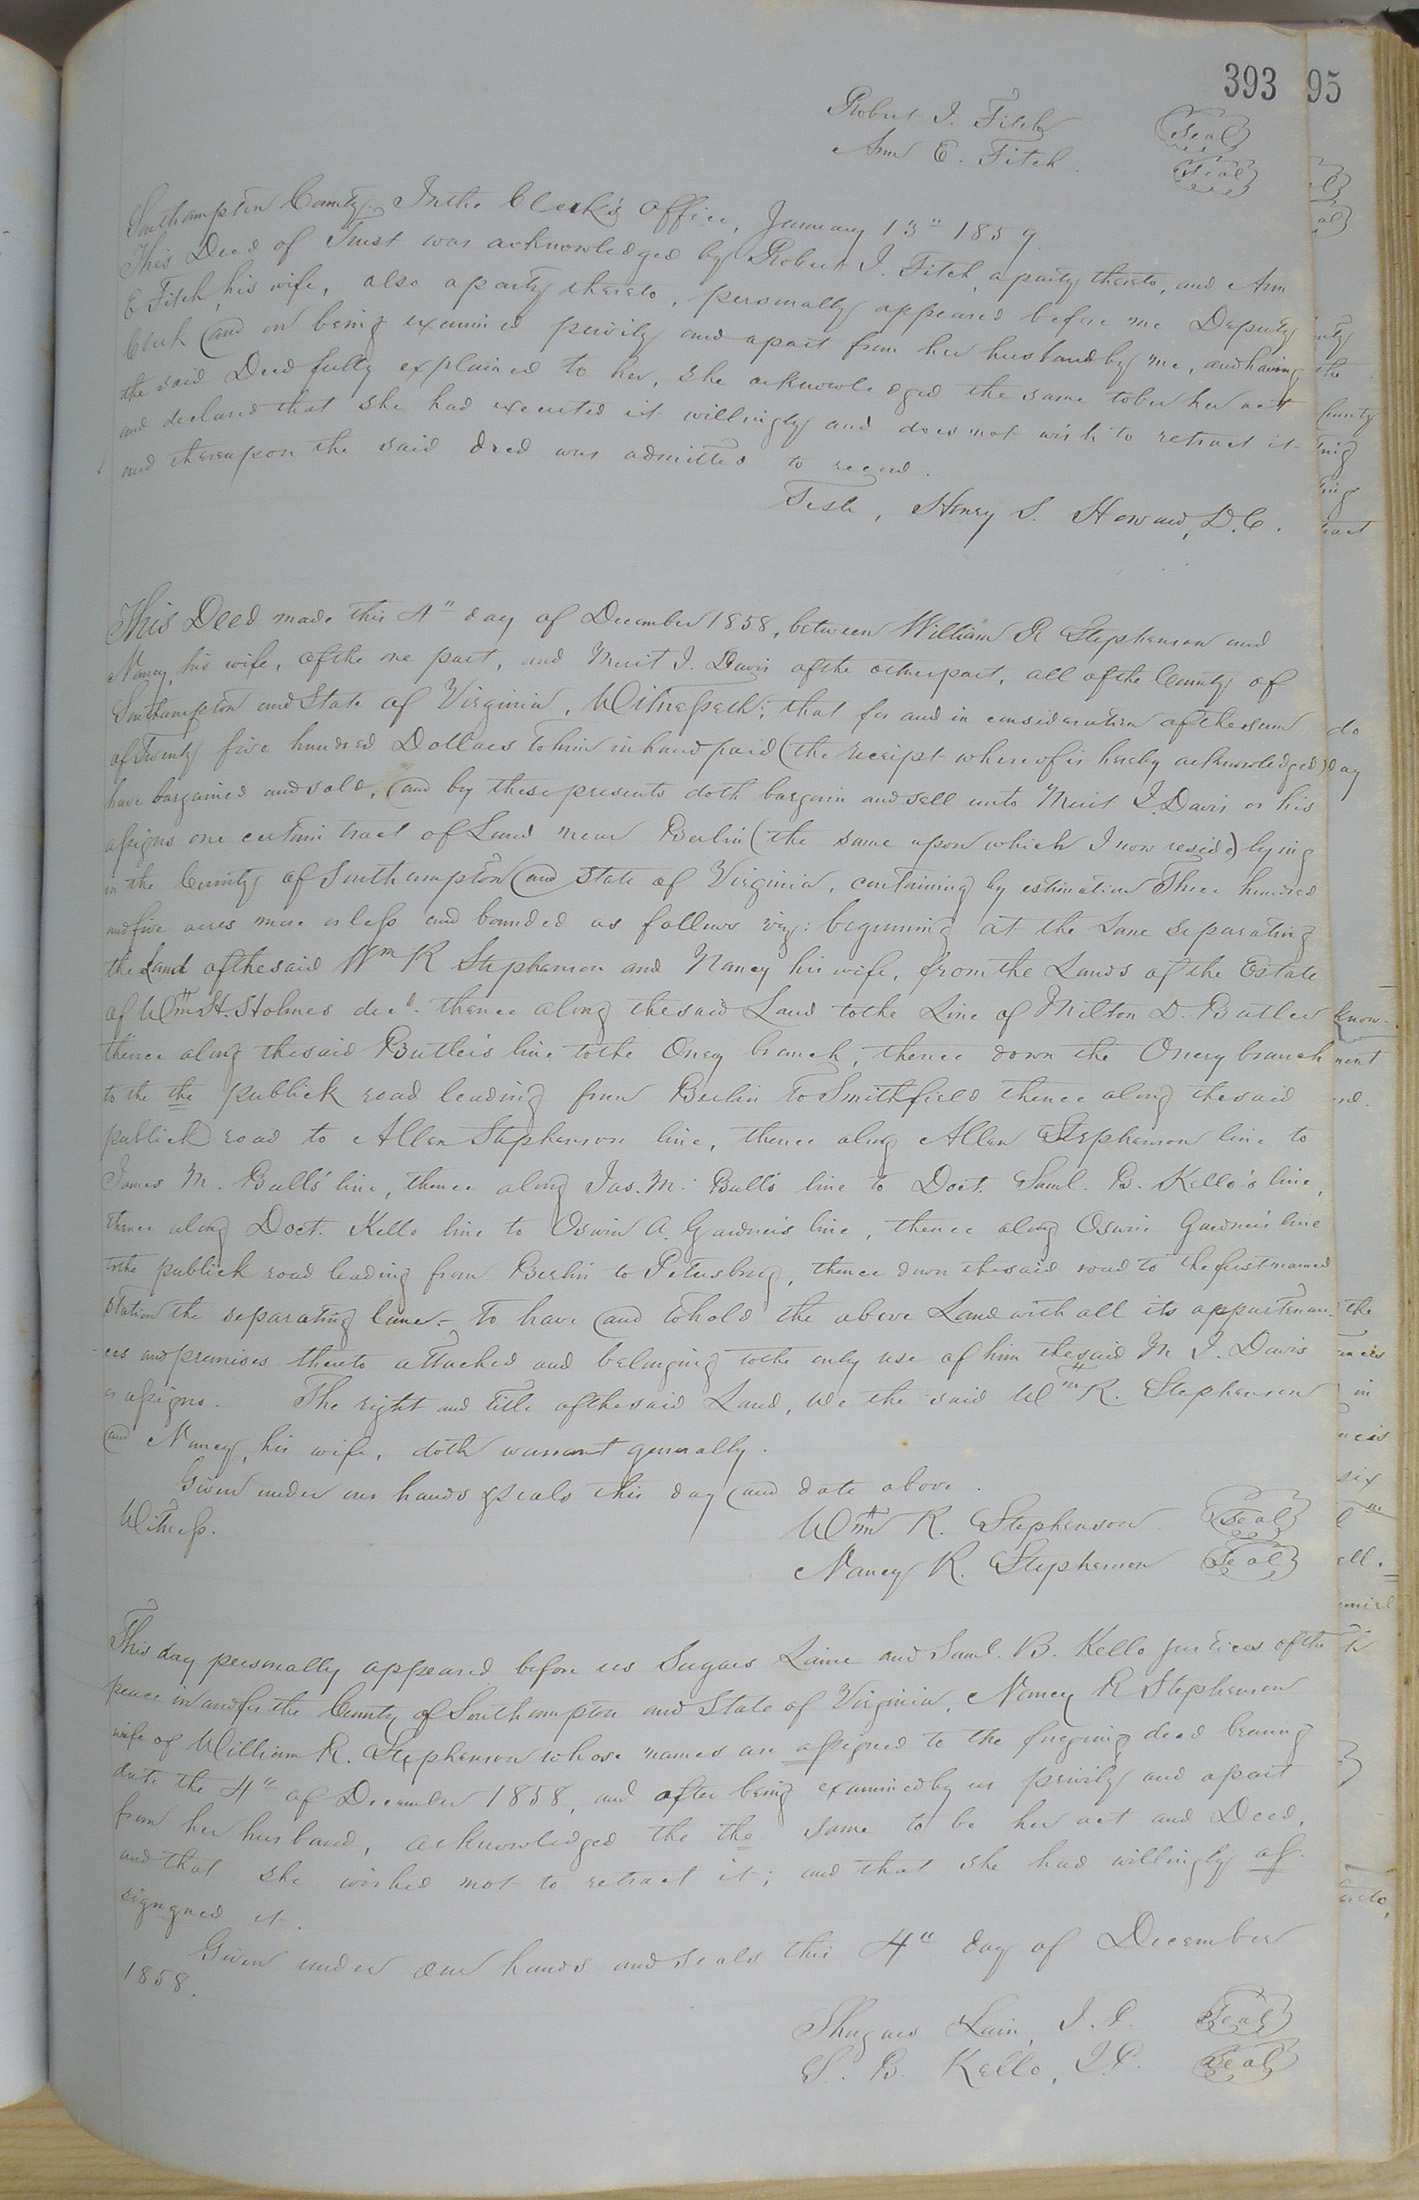 393 95
Robert J. Fitch (Seal)
Ann E. Fitch. (Seal)
Southampton County. In the Clerk's Office, January 13" 1859
This Deed of Trust was acknowledged by Robert J. Fitch, a party thereto, and Ann
E Fitch, his wife, also a party thereto, personally appeared before me Deputy
Clerk and on being examined privily and apart from her husband by me, and having
the said Deed fully explained to her, she acknowledged the same to be her act
and declared that she had executed it willingly and does not wish to retract it
and thereupon the said deed was admitted to record.
Teste, Henry S. Howard, D.C.
This Deed made this 4" day of December 1858, between William R Stephenson and
Nancy, his wife, of the one part, and Merit J. Davis of the other part, all of the County of
Southampton and State of Virginia, Witnesseth; that for and in consideration of the sum
of Twenty five hundred Dollars to him in hand paid (the receipt whereof is hereby acknowledged)
have bargained and sold, and by these presents doth bargain and sell unto Merit J. Davis or his
assigns one certain tract of Land near Berlin (the same upon which I now reside) lying
in the County of Southampton and State of Virginia, containing by estimation Three hundred
and five acres more or less and bounded as follows viz: beginning at the Lane separating
the Land of the said Wm R Stephenson and Nancy his wife, from the Lands of the Estate
of Wm H. Holmes decd. thence along the said Land to the Line of Milton D. Butler
thence along the said Butler's line to the Oney branch, thence down the Oney branch
to the the publick road leading from Berlin to Smithfield thence along the said
publick road to Allen Stephenson line, thence along Allen Stephenson line to
James M. Bull's line, thence along Jas. M. Bull's line to Doct. Saml. B. Kello's line,
thence along Doct. Kello line to Oswin A. Gardner's line, thence along Oswin Gardner's line
to the publick road leading from Berlin to Petersburg, thence down the said road to the first named
station the separating lane. To have and to hold the above Land with all its appurtenan-
ces and premises thereto attached and belonging to the only use of him the said M. J. Davis
or assigns. The right and title of the said Land, We the said Wm R. Stephenson
and Nancy, his wife, doth warrant generally.
Given under our hands & seals this day and date above.
Witness. Wm R. Stephenson (Seal)
Nancy R. Stephenson (Seal)
This day personally appeared before us Sugars Laine and Saml. B. Kello justices of the
peace in and for the County of Southampton and State of Virginia, Nancy R Stephenson
wife of William R. Stephenson whose names are assigned to the foregoing deed bearing
date the 4" of December 1858, and after being examined by us privily and apart
from her husband, acknowledged the the same to be her act and Deed,
and that she wished not to retract it; and that she had willingly as-
signgned it.
Given under our hands and seals this 4" day of December
1858.
Shugars Lain, J.P. (Seal)
S. B. Kello, J.P. (Seal)